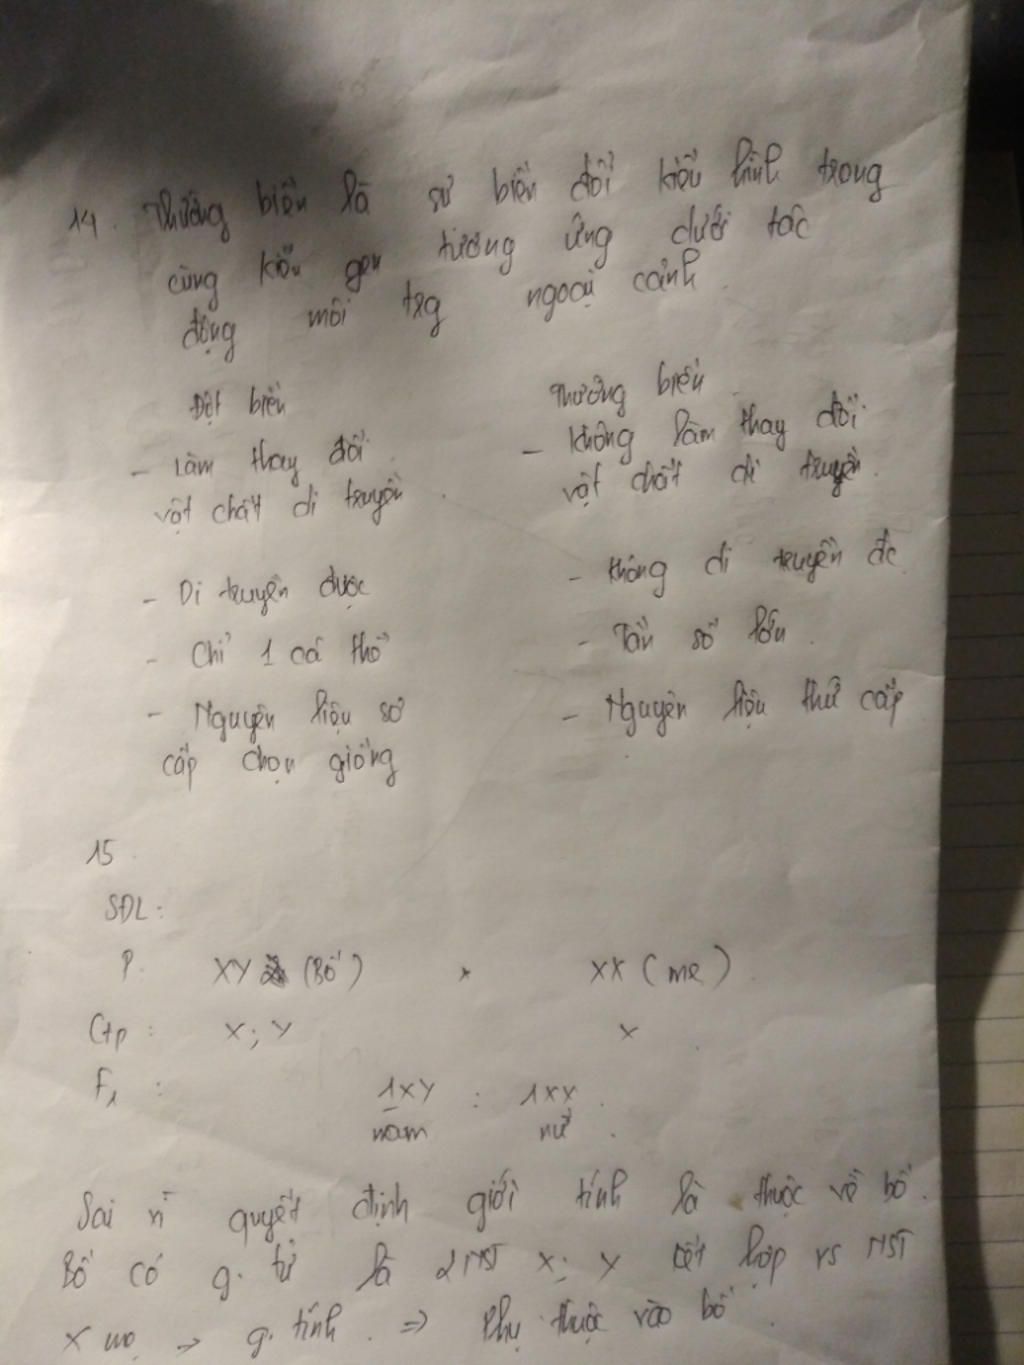 14. Thường biến là sự biến đổi kiểu hình trong
cùng kiểu gen tương ứng dưới tác
động môi trg ngoại cảnh.
Đột biến
Thường biến
- Làm thay đổi
vật chất di truyền
- Không làm thay đổi
vật chất di truyền.
- Di truyền được
- Không di truyền đc
- Chỉ 1 cá thể
- Tần số lớn.
- Nguyên liệu sơ
cấp chọn giống
- Nguyên liệu thứ cấp
15
SĐL:
P. XY (Bố) x XX (mẹ)
Gtp: X; Y X
F1: 1XY : 1XX
nam nữ.
Sai vì quyết định giới tính là thuộc về bố.
Bố có g. tử là 2 NST X; Y kết hợp vs NST
X mẹ → g. tính. ⇒ Phụ thuộc vào bố.